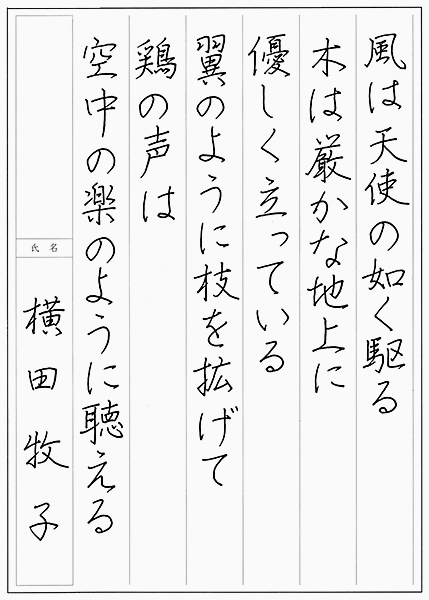 風は天使の如く駆る
木は厳かな地上に
優しく立っている
翼のように枝を拡げて
鶏の声は
空中の楽のように聴える
氏名
横田牧子